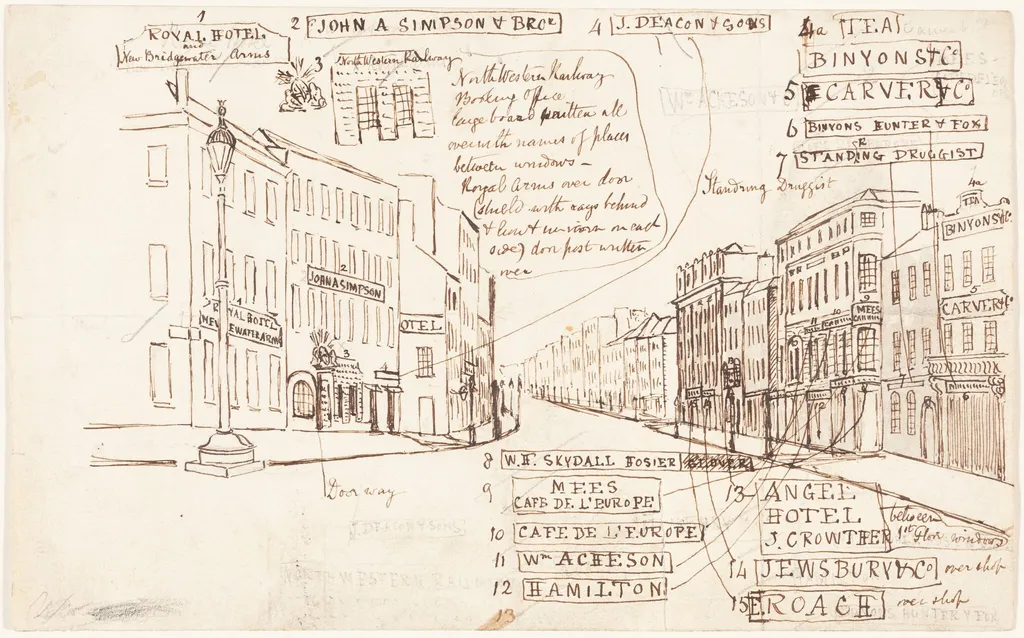 1
ROYAL HOTEL
and
New Bridgewater Arms
2 JOHN A SIMPSON & BROR
4 J. DEACON & SONS
4a TEA
BINYONS & Co
5 CARVER & Co
6 BINYONS HUNTER & FOX
7 STANDING DRUGGIST
3
North Western Railway
North Western Railway
Booking Office
large board written all
over with names of places
between windows—
Royal Arms over door
(shield with rays behind
& lion & unicorn on each
side) door post written
over
Wm ACHESON &
Standring Druggist
4a
TEA
BINYONS &
5
CARVER & C
6
2
JOHN A SIMPSON
1
YAL HOTEL
NEW
EWATER ARM
OTEL
3
9
MEES
10
11
12
7
Door way
8 W.H. SKYDALL HOSIER
9 MEES
CAFE DE L'EUROPE
10 CAFE DE L'EUROPE
11 Wm ACHESON
12 HAMILTON
13 ANGEL
HOTEL
J. CROWTHER
between
1st Floor windows
14 JEWSBURY & Co over shop
15 ROACH over shop
J. DEACON & SONS
NORTH WESTERN RAIL
13